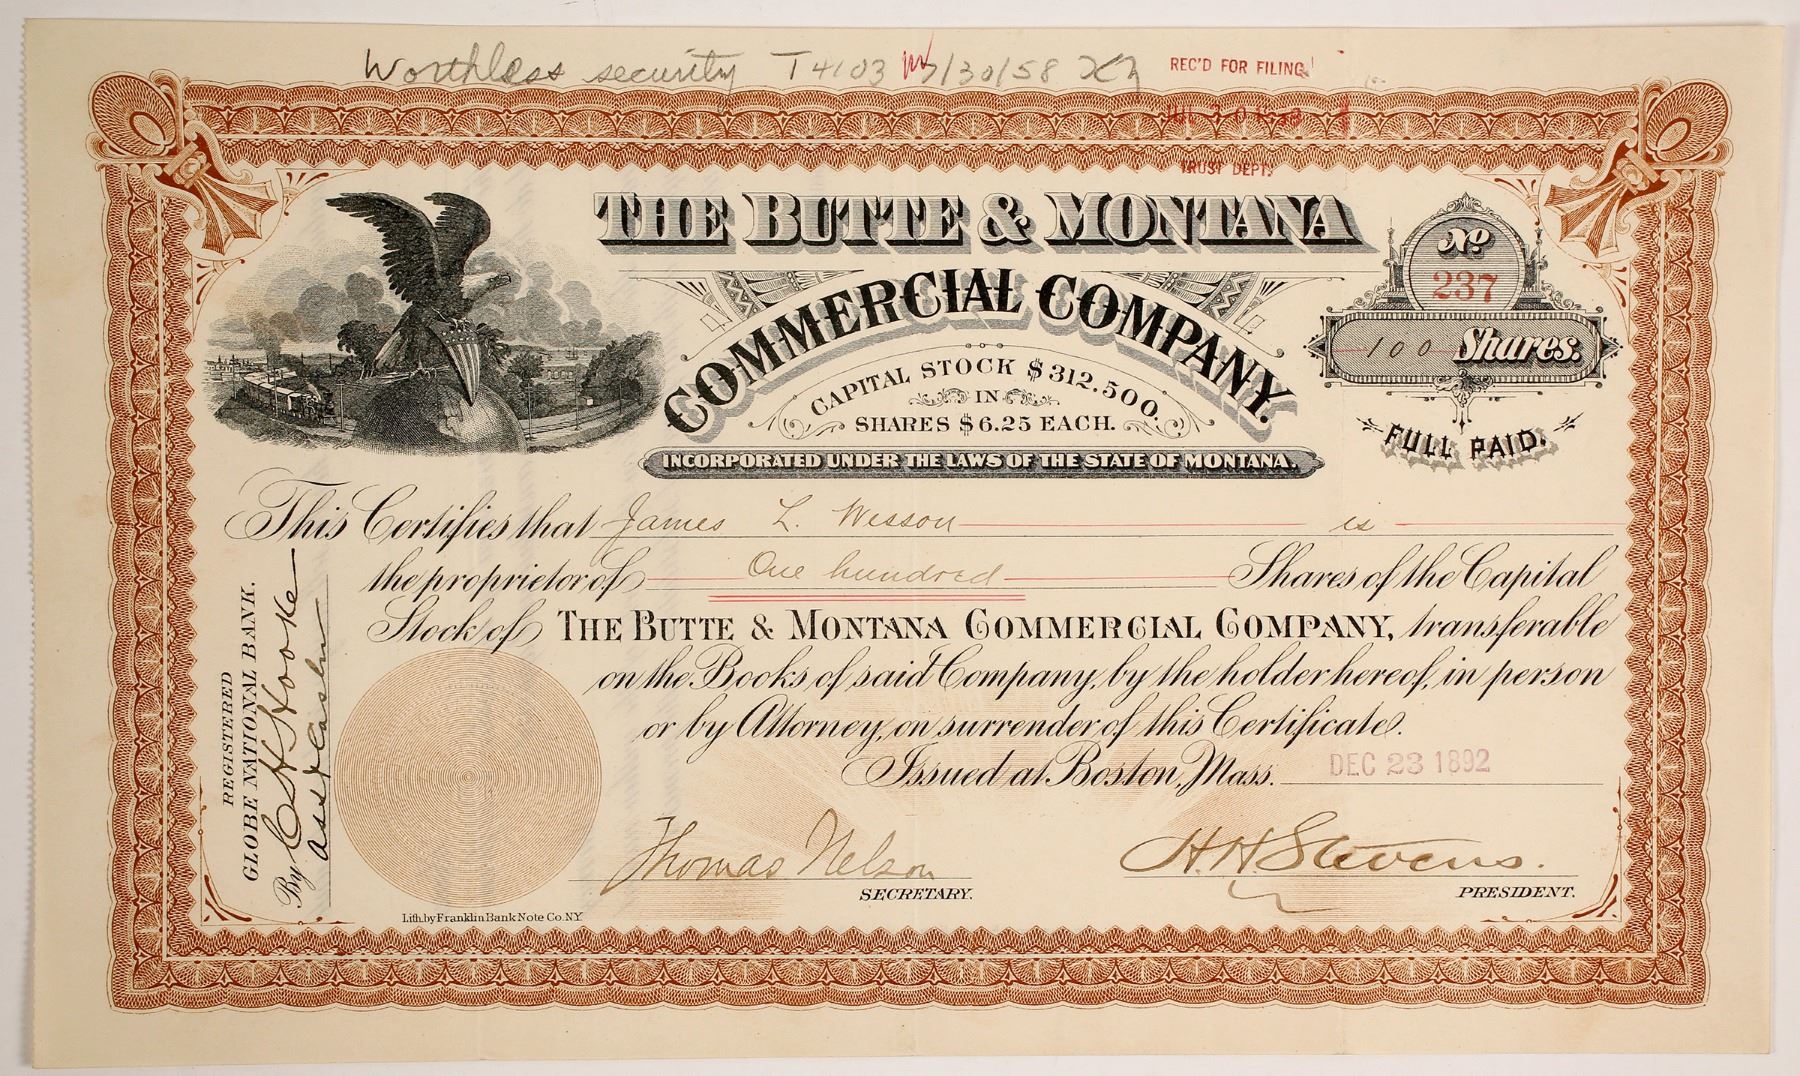 Worthless security T4103 7/30/58
REC'D FOR FILING
JUL 30 1958
TRUST DEPT.
THE BUTTE & MONTANA
COMMERCIAL COMPANY.
CAPITAL STOCK $312.500.
IN
SHARES $6.25 EACH.
INCORPORATED UNDER THE LAWS OF THE STATE OF MONTANA.
No
237
100 Shares.
FULL PAID.
This Certifies that James L. Wesson is
the proprietor of One hundred Shares of the Capital
Stock of THE BUTTE & MONTANA COMMERCIAL COMPANY, transferable
on the Books of said Company, by the holder hereof, in person
or by Attorney, on surrender of this Certificate.
Issued at Boston, Mass. DEC 23 1892
REGISTERED
GLOBE NATIONAL BANK.
By C H Hooke
asst Cashr
Thomas Nelson
SECRETARY.
H. H. Stevens.
PRESIDENT.
Lith. by Franklin Bank Note Co. N.Y.